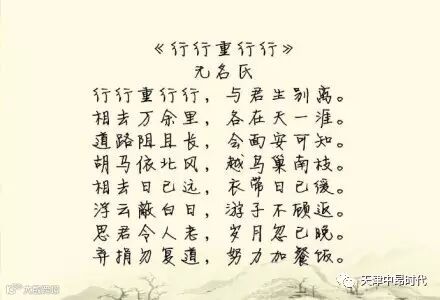 《行行重行行》
无名氏
行行重行行，与君生别离。
相去万余里，各在天一涯。
道路阻且长，会面安可知。
胡马依北风，越鸟巢南枝。
相去日已远，衣带日已缓。
浮云蔽白日，游子不顾返。
思君令人老，岁月忽已晚。
弃捐勿复道，努力加餐饭。
天津中昂时代